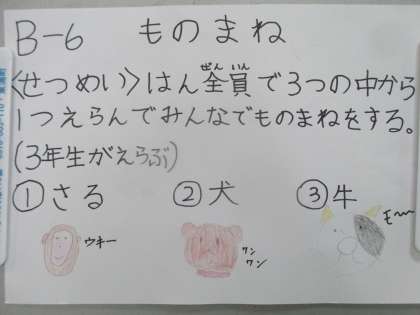 B-6 ものまね
ぜんいん
<せつめい>はん全員で3つの中から
1つえらんでみんなでものまねをする。
(3年生がえらぶ)
①さる ②犬 ③牛
ウキー ワンワン モ〜〜